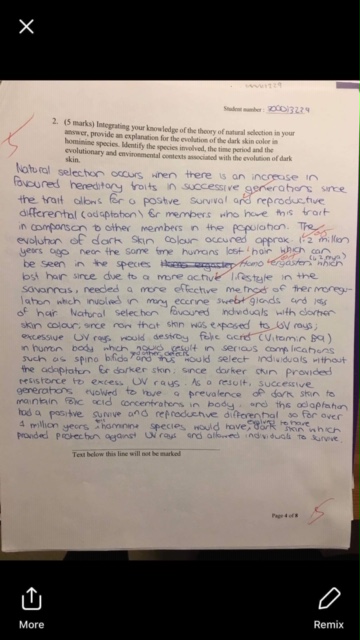 Student number:
2. (5 marks) Integrating your knowledge of the theory of natural selection in your
answer, provide an explanation for the evolution of the dark skin color in
hominine species. Identify the species involved, the time period and the
evolutionary and environmental contexts associated with the evolution of dark
skin.
5
Natural selection occurs when there is an increase in
favoured hereditary traits in successive generations since
the trait allows for a positive survival and reproductive
differential (adaptation) for members who have this trait
in comparison to other members in the population. The
evolution of dark skin colour occured approx 1.2 million
years ago near the same time humans lost hair which can
be seen in the species Homo ergaster which
lost hair since due to a more active lifestyle in the
savannas, needed a more effective method of thermoregu-
lation which involved in many eccrine sweat glands and loss
of hair. Natural selection favoured individuals with darker
skin colour, since now that skin was exposed to UV rays;
excessive UV rays would destroy folic acid (Vitamin B9)
in human body which would result in serious complications
such as spina bifida and thus would select individuals without
the adaptation for darker skin; since darker skin provided
resistance to excess UV rays. As a result, successive
generations evolved to have a prevalence of dark skin to
maintain folic acid concentrations in body and this adaptation
had a positive survive and reproductive differential so for over
1 million years hominine species would have evolved to have dark skin which
provided protection against UV rays and allowed individuals to survive.
Text below this line will not be marked
Page 4 of 8
5
More
Remix